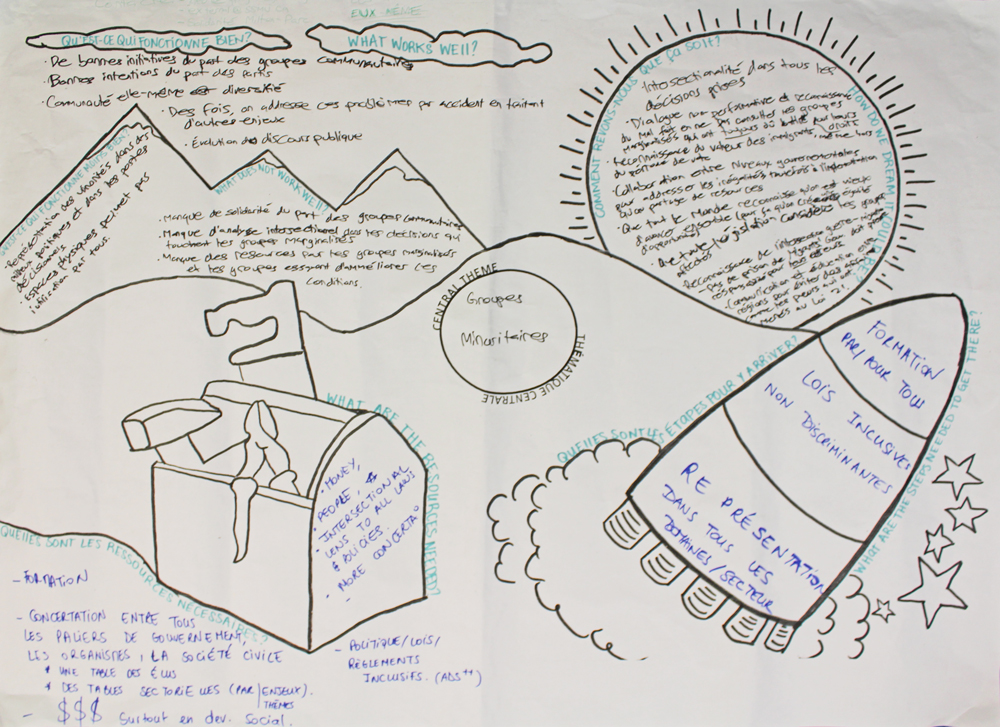 EUX MÊME
QU'EST-CE QUI FONCTIONNE BIEN?
WHAT WORKS WELL?
• De bonnes initiatives du part des groupes communautaires
• Bonnes intentions du part des partis
• Communauté elle-même est diversifié
• Des fois, on addresse ces problèmes par accident en traitant
d'autres enjeux
• Évolution de discours publique
QU'EST-CE QUI FONCTIONNE MOINS BIEN?
• Représentation des minorités dans des
milieux politiques et dans les postes
décisionnels.
• Espaces physiques peuvent pas
utilisation par tous.
WHAT DOES NOT WORK WELL?
• Manque de solidarité du part des groupes communautaires
• Manque d'analyse intersectionnel dans les décisions qui
touchent les groupes marginalisés
• Manque des ressources par les groupes marginalisés
et les groupes essayant d'améliorer les
conditions.
COMMENT RÊVONS-NOUS QUE ÇA SOIT?
HOW DO WE DREAM IT COULD BE?
• Intersectionalité dans tous les
décisions prises
• Dialogue non performative et reconnaissance
du mal fait en ne pas consulter les groupes
marginalisés qui ont toujours dû battre pour leurs
droits
• Reconnaissance du valeur des immigrants, même hors
du
• Collaboration entre niveaux gouvernementales
pour addresser les inégalités
qu'on partage de ressources
• Que tout le monde reconnaisse qu'on est mieux
d'avancer ensemble
d'opportunités
• Que toute législation considère les groupes
affectés
• Reconnaissance de
Communication et éducation
régions pour éviter des
comme les peurs qui ont
menés au Loi 21.
CENTRAL THEME
Groupes
Minoritaires
THÉMATIQUE CENTRALE
WHAT ARE THE RESOURCES NEEDED?
• MONEY,
PEOPLE,
• INTERSECTIONAL
LENS TO ALL LAWS
& POLICIES.
• MORE CONCERTA°
QUELLES SONT LES RESSOURCES NÉCESSAIRES?
- FORMATION
- CONCERTATION ENTRE TOUS
LES PALIERS DE GOUVERNEMENT,
LES ORGANISMES, LA SOCIÉTÉ CIVILE
* UNE TABLE DES ÉLUS
* DES TABLES SECTORIELLES (PAR ENJEUX).
THÈMES
- $$$ surtout en dev. social.
- POLITIQUE/LOIS/
RÈGLEMENTS
INCLUSIFS. (ADS++)
QUELLES SONT LES ÉTAPES POUR Y ARRIVER?
WHAT ARE THE STEPS NEEDED TO GET THERE?
FORMATION
PAR/POUR TOUS
LOIS INCLUSIVES
NON DISCRIMINANTES
REPRÉSENTATION
DANS TOUS LES
DOMAINES/SECTEUR